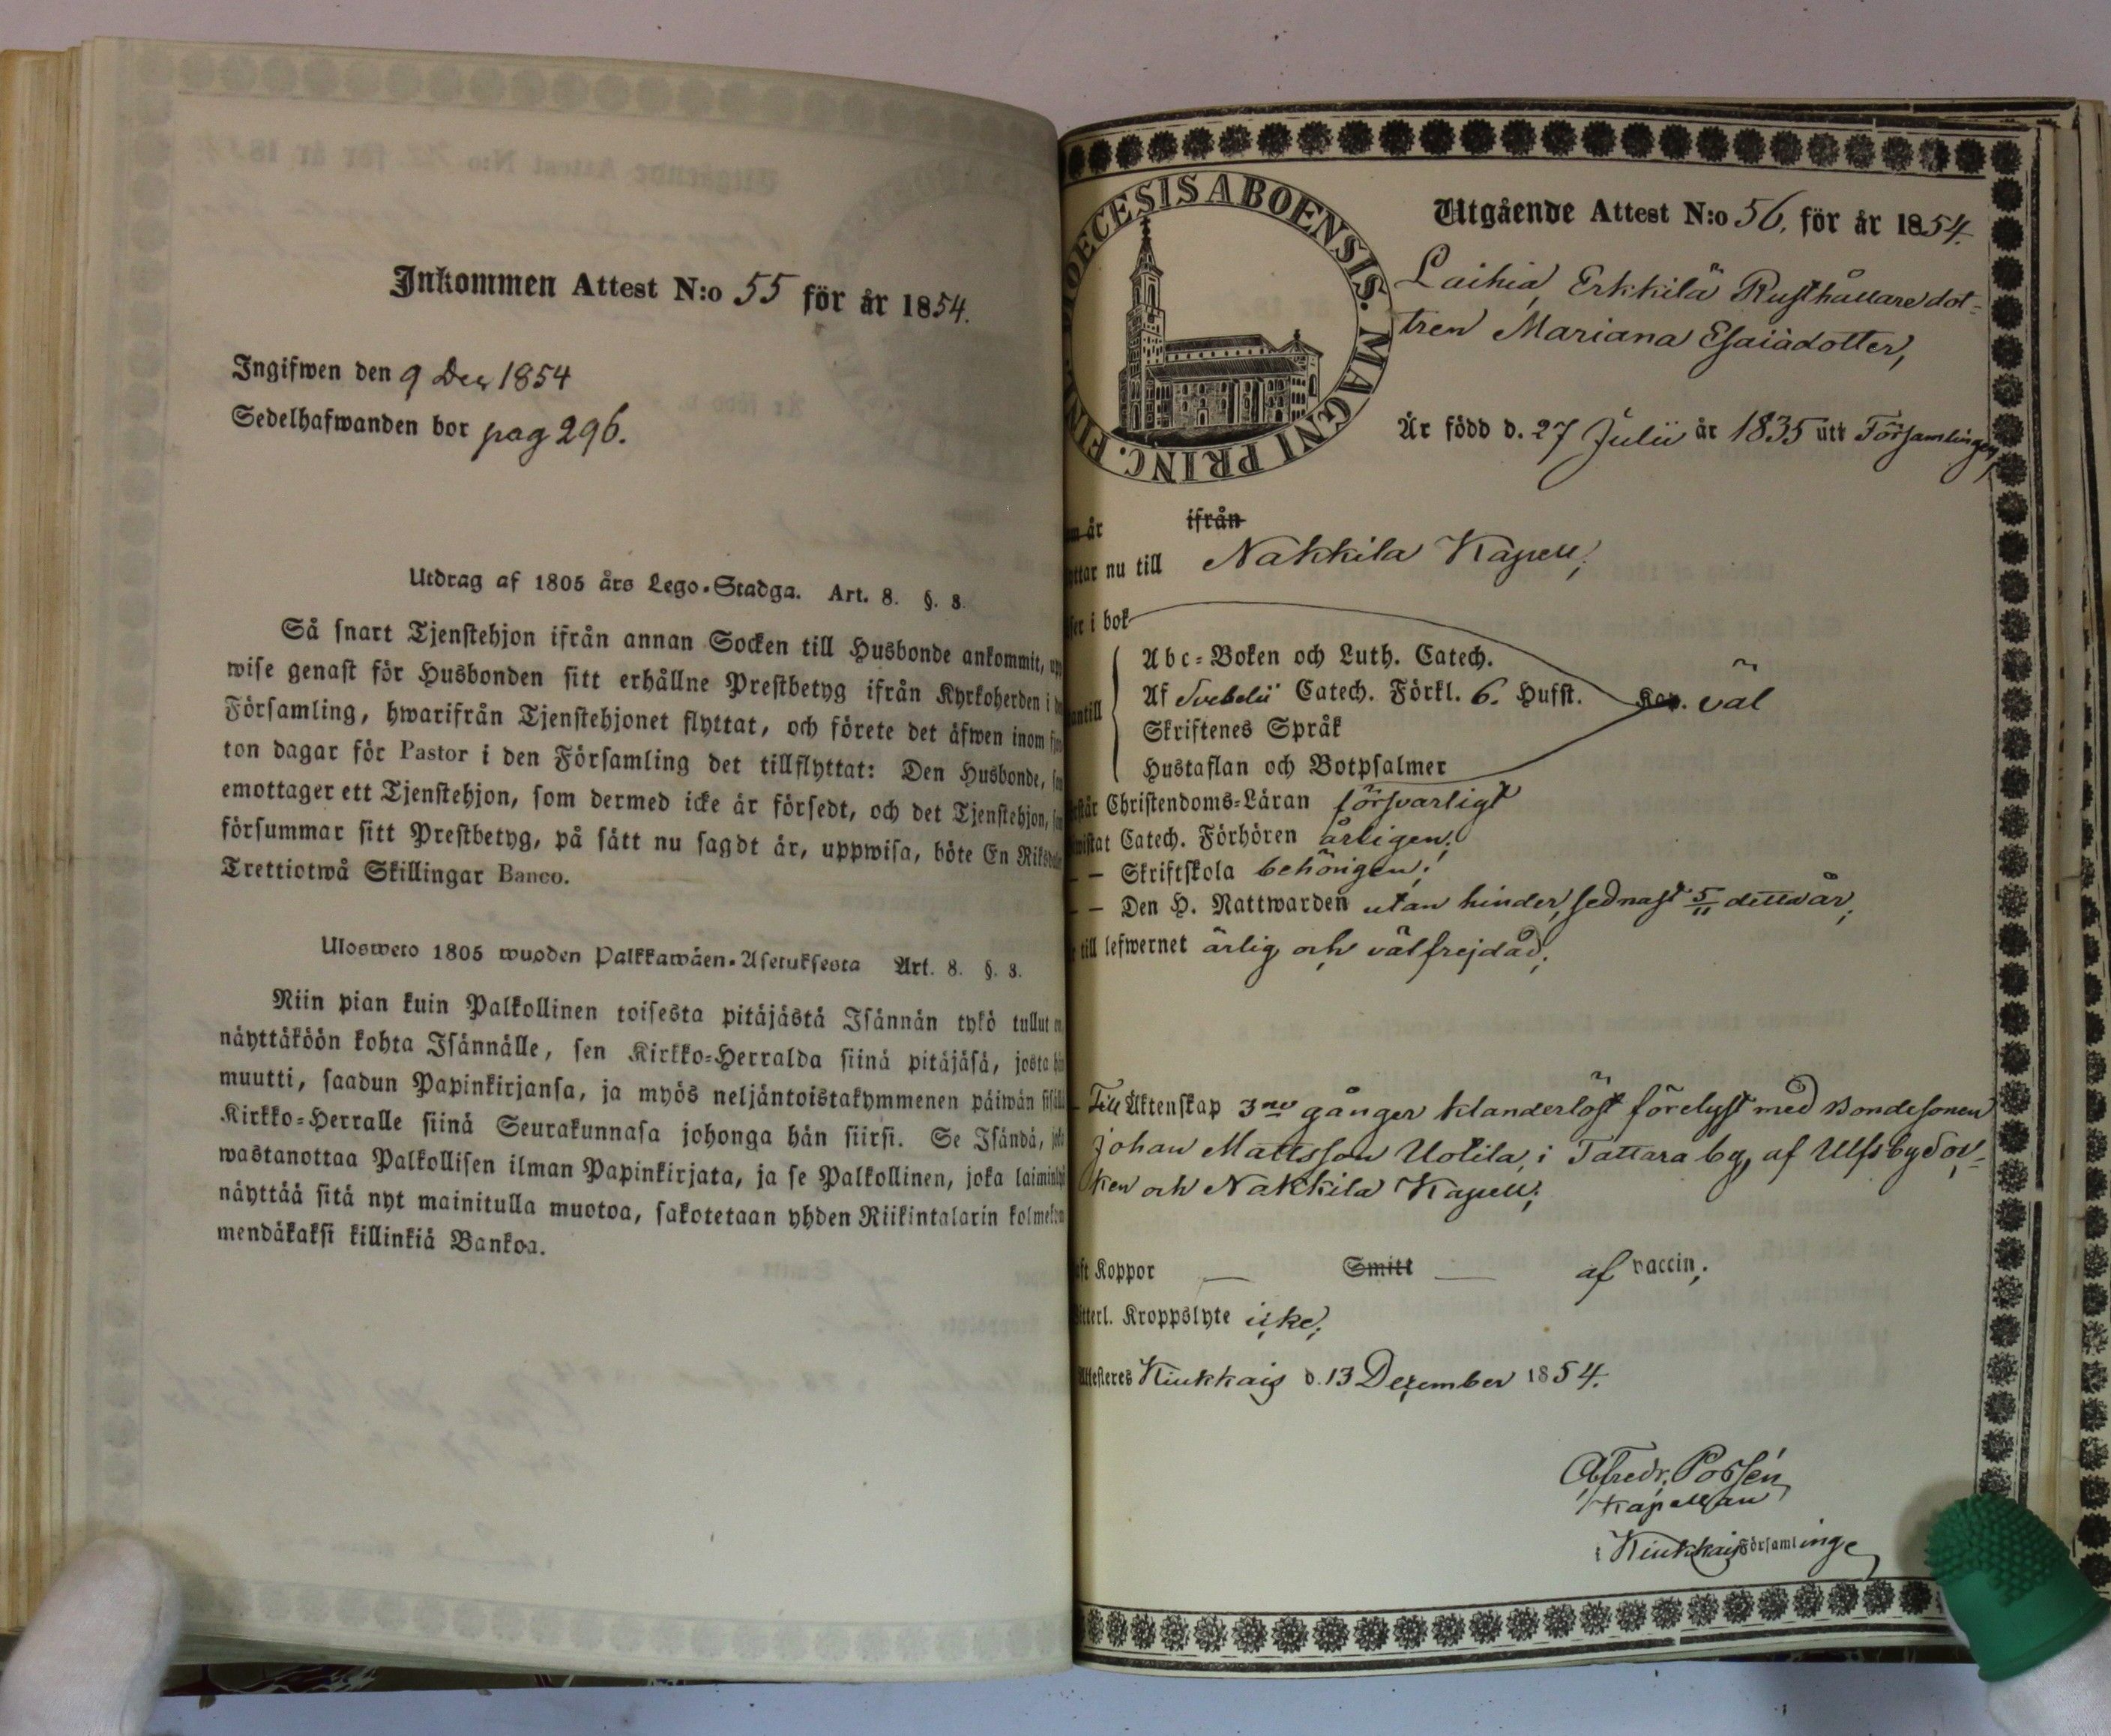 Inkommen Attest N:o 55 för år 1854.
Ingifwen den 9 Dec 1854
Sedelhafwanden bor pag 296.
Utdrag af 1805 års Lego-Stadga. Art. 8. §. 8.
Så snart Tjenstehjon ifrån annan Socken till Husbonde ankommit, upp
wise genast för Husbonden sitt erhållne Prestbetyg ifrån Kyrkoherden i
Församling, hwarifrån Tjenstehjonet flyttat, och förete det äfwen inom
ton dagar för Pastor i den Församling det tillflyttat: Den Husbonde,
emottager ett Tjenstehjon, som dermed icke är försedt, och det Tjenstehjon,
försummar sitt Prestbetyg, på sätt nu sagdt är, uppwisa, böte En Riksdaler
Trettiotwå Skillingar Banco.
Ulosweto 1805 wuoden Palkkawäen-Asetuksesta Art. 8. §. 8.
Niin pian kuin Palkollinen toisesta pitäjästä Isännän tykö tullut on,
näyttäköön kohta Isännälle, sen Kirkko-Herralda siinä pitäjäsä, josta hän
muutti, saadun Papinkirjansa, ja myös neljäntoistakymmenen päiwän sisällä
Kirkko-Herralle siinä Seurakunnasa johonga hän siirsi. Se Isändä, joka
wastanottaa Palkollisen ilman Papinkirjata, ja se Palkollinen, joka laiminlyö
näyttää sitä nyt mainitulla muotoa, sakotetaan yhden Riikintalarin kolmekym
mendäkaksi killinkiä Bankoa.
DIOECESIS ABOENSIS. MAGNI PRINC. FINL.
Utgående Attest N:o 56, för år 1854.
Laihia Erkkilä Rusthållaredot-
tren Mariana Esaiädotter,
Är född d. 27 Julii år 1835 uti Församlingen,
är ifrån
nu till Nakkila Kapell;
i bok
Abc-Boken och Luth. Catech.
Af Svebelii Catech. Förkl. 6. Hufst. väl
antill
Skriftenes Språk
Hustaflan och Botpsalmer
Christendoms-Läran försvarligt
Catech. Förhören årligen;
– – Skriftskola behörigen;
– – Den H. Nattwarden utan hinder, sednast 5/11 detta år;
till lefwernet ärlig och välfrejdad;
– Till Äktenskap 3ne gånger klanderlöst förelyst med Bondesonen
Johan Mattsson Uotila, i Tattara by, af Ulfsby Soc-
ken och Nakkila Kapell;
Koppor — Smitt — af vaccin;
Kroppslyte icke;
Attesteres Kiukkais d. 13 Dezember 1854.
Alfredr. Possén
Kapellan
i Kiukkais Församlinge